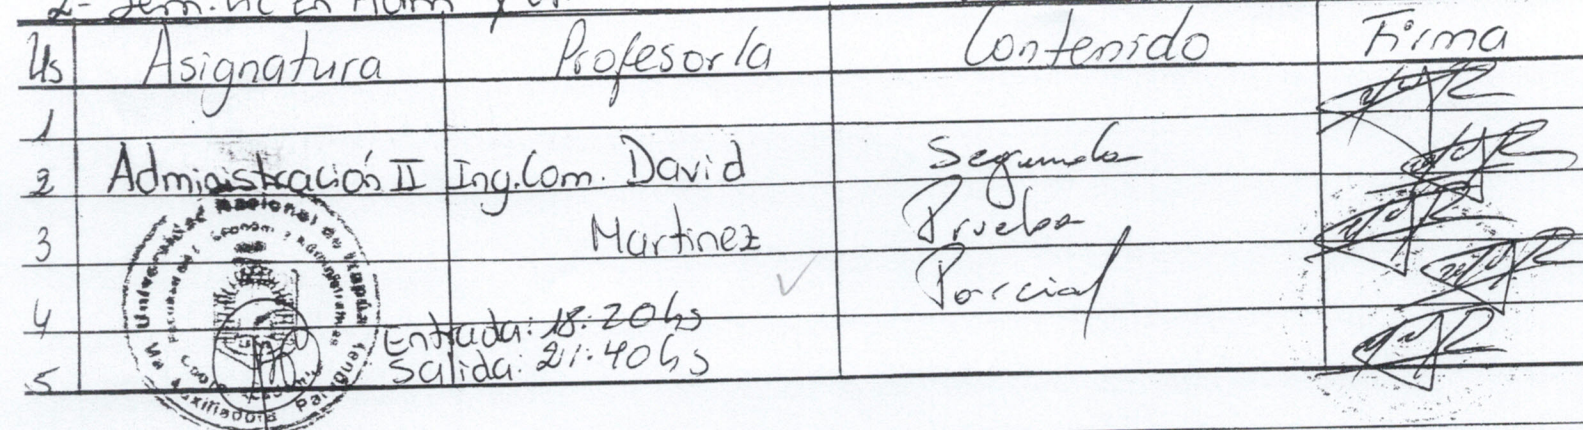 Hs Asignatura Profesor/a Contenido Firma
1
2 Administración II Ing.Com. David Segunda
3 Martinez Prueba
4 Parcial
Entrada: 18:20hs
Salida: 21:40hs
5
Universidad Nacional de Itapúa